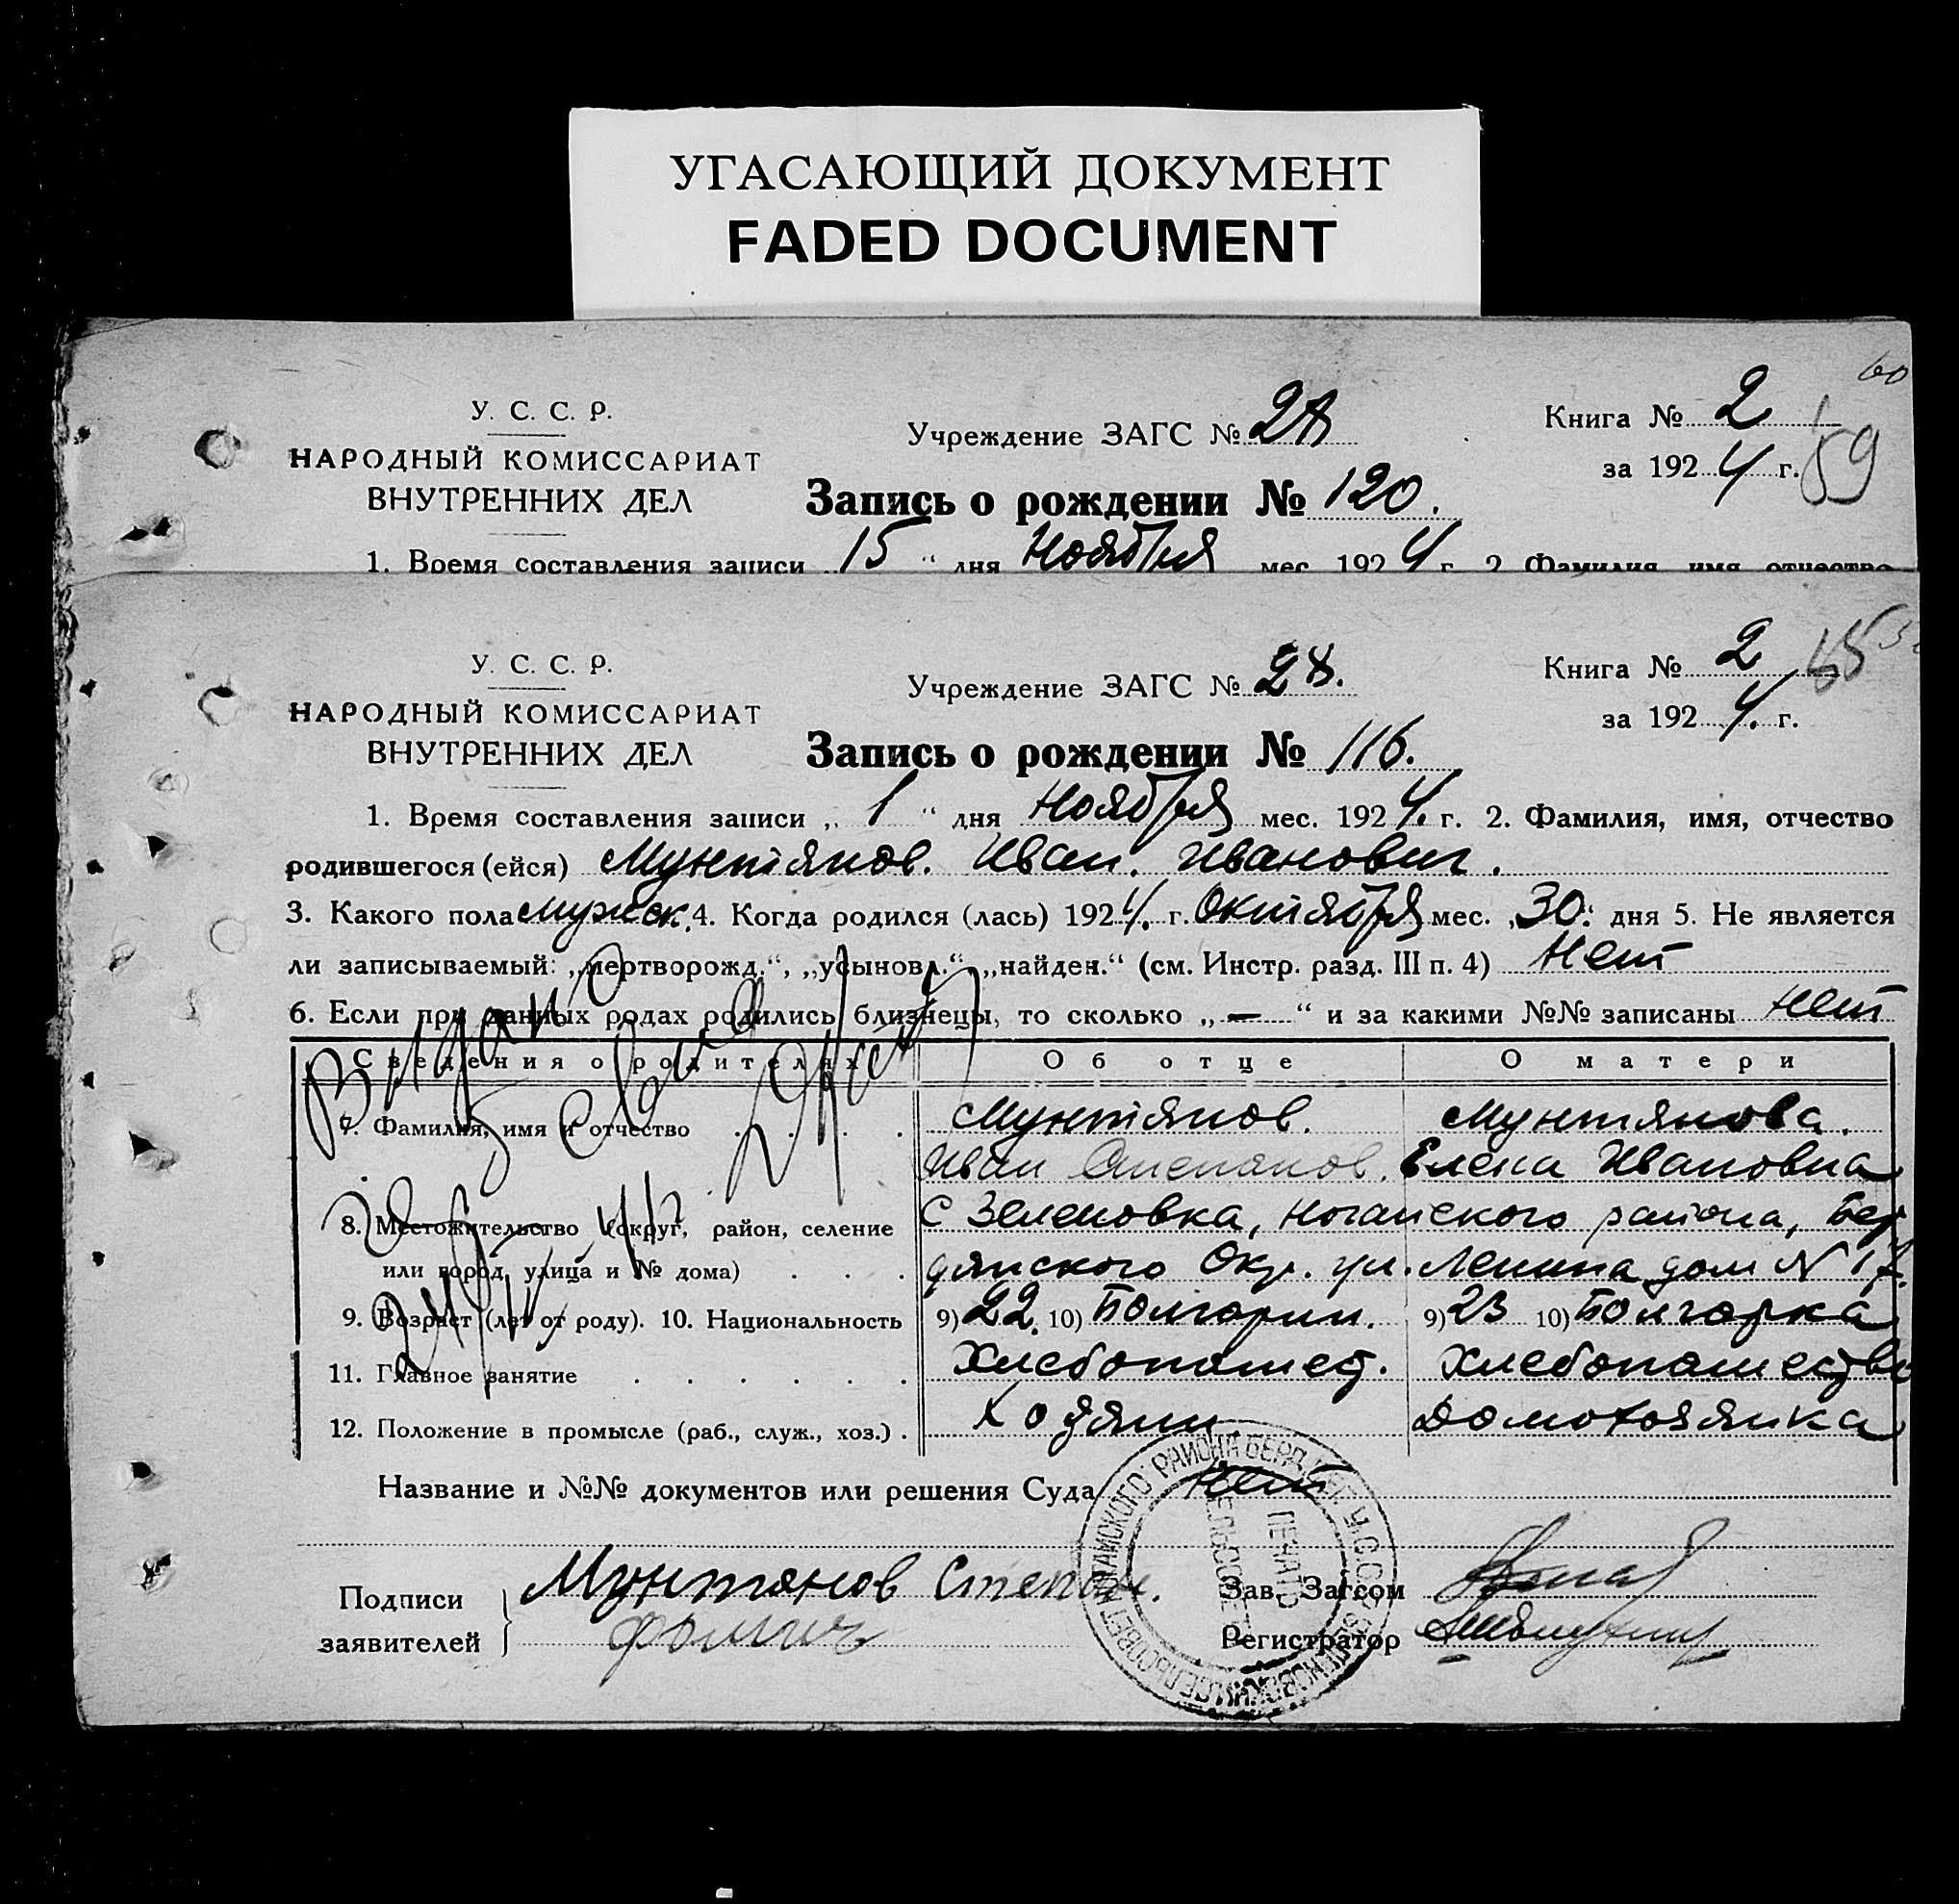 УГАСАЮЩИЙ ДОКУМЕНТ
FADED DOCUMENT
60
У. С. С. Р.
НАРОДНЫЙ КОМИССАРИАТ
ВНУТРЕННИХ ДЕЛ
Учреждение ЗАГС №
Книга № 2
за 1924 г.
59
Запись о рождении № 120.
1. Время составления записи „ 15 “ дня Ноября мес. 1924 г. 2. Фамилия, имя, отчество
У. С. С. Р.
НАРОДНЫЙ КОМИССАРИАТ
ВНУТРЕННИХ ДЕЛ
Учреждение ЗАГС №
Книга № 2
за 1924. г.
Запись о рождении № 116.
1. Время составления записи „ 1 “ дня Ноября мес. 1924. г. 2. Фамилия, имя, отчество
родившегося (ейся) Мунтянов. Иван. Иванович.
3. Какого пола мужск. 4. Когда родился (лась) 1924. г. Октября мес. „30.“ дня 5. Не является
ли записываемый: „мертворожд.“, „усыновл.“, „найден.“ (см. Инстр. разд. III п. 4) Нет
6. Если при данных родах родились близнецы, то сколько „—“ и за какими №№ записаны нет
Сведения о родителях Об отце О матери
7. Фамилия, имя и отчество . . . . Мунтянов. Мунтянова.
Иван Степанов. Елена Ивановна
8. Местожительство (округ, район, селение С Зеленовка, Ногайского района, Бер
или город, улица и № дома) . . . дянского Окр. ул. Ленина дом N 17.
9. Возраст (лет от роду). 10. Национальность 9) 22. 10) Болгарин. 9) 23 10) Болгарка
11. Главное занятие . . . . . . Хлебопашец. Хлебопашество
12. Положение в промысле (раб., служ., хоз.) . Хозяин Домохозяйка
Название и №№ документов или решения Суда Нет
Подписи
заявителей
Мунтянов Степан.
Фомич
Зав. Загсом
Регистратор